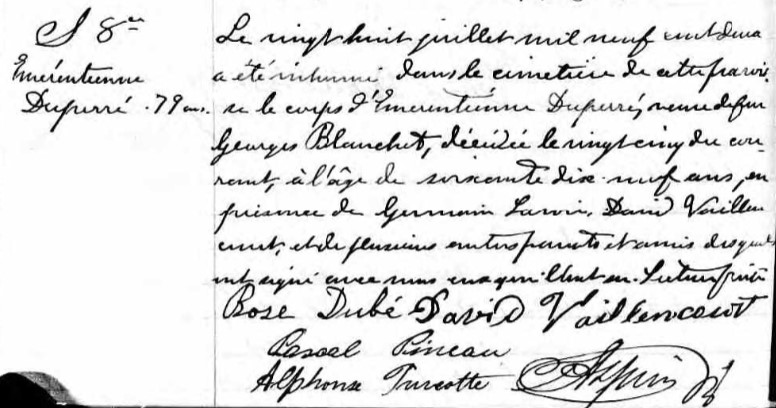 S 8e
Emérentienne
Duperré 79 ans.
Le vingt huit juillet mil neuf cent deux
a été inhumé dans le cimetière de cette parois
se le corps d'Emerentienne Duperré, veuve de feu
Georges Blanchet, décédée le vingt cinq du cou-
rant, à l'âge de soixante dix-neuf ans, en
présence de Germain Lavoie, David Vaillan
court, et de plusieurs autres parents et amis desquels
ont signé avec nous ceux qui l'ont su. Lecture faite
Rose Dubé David Vaillencourt
Pascal Pineau
Alphonse Turcotte